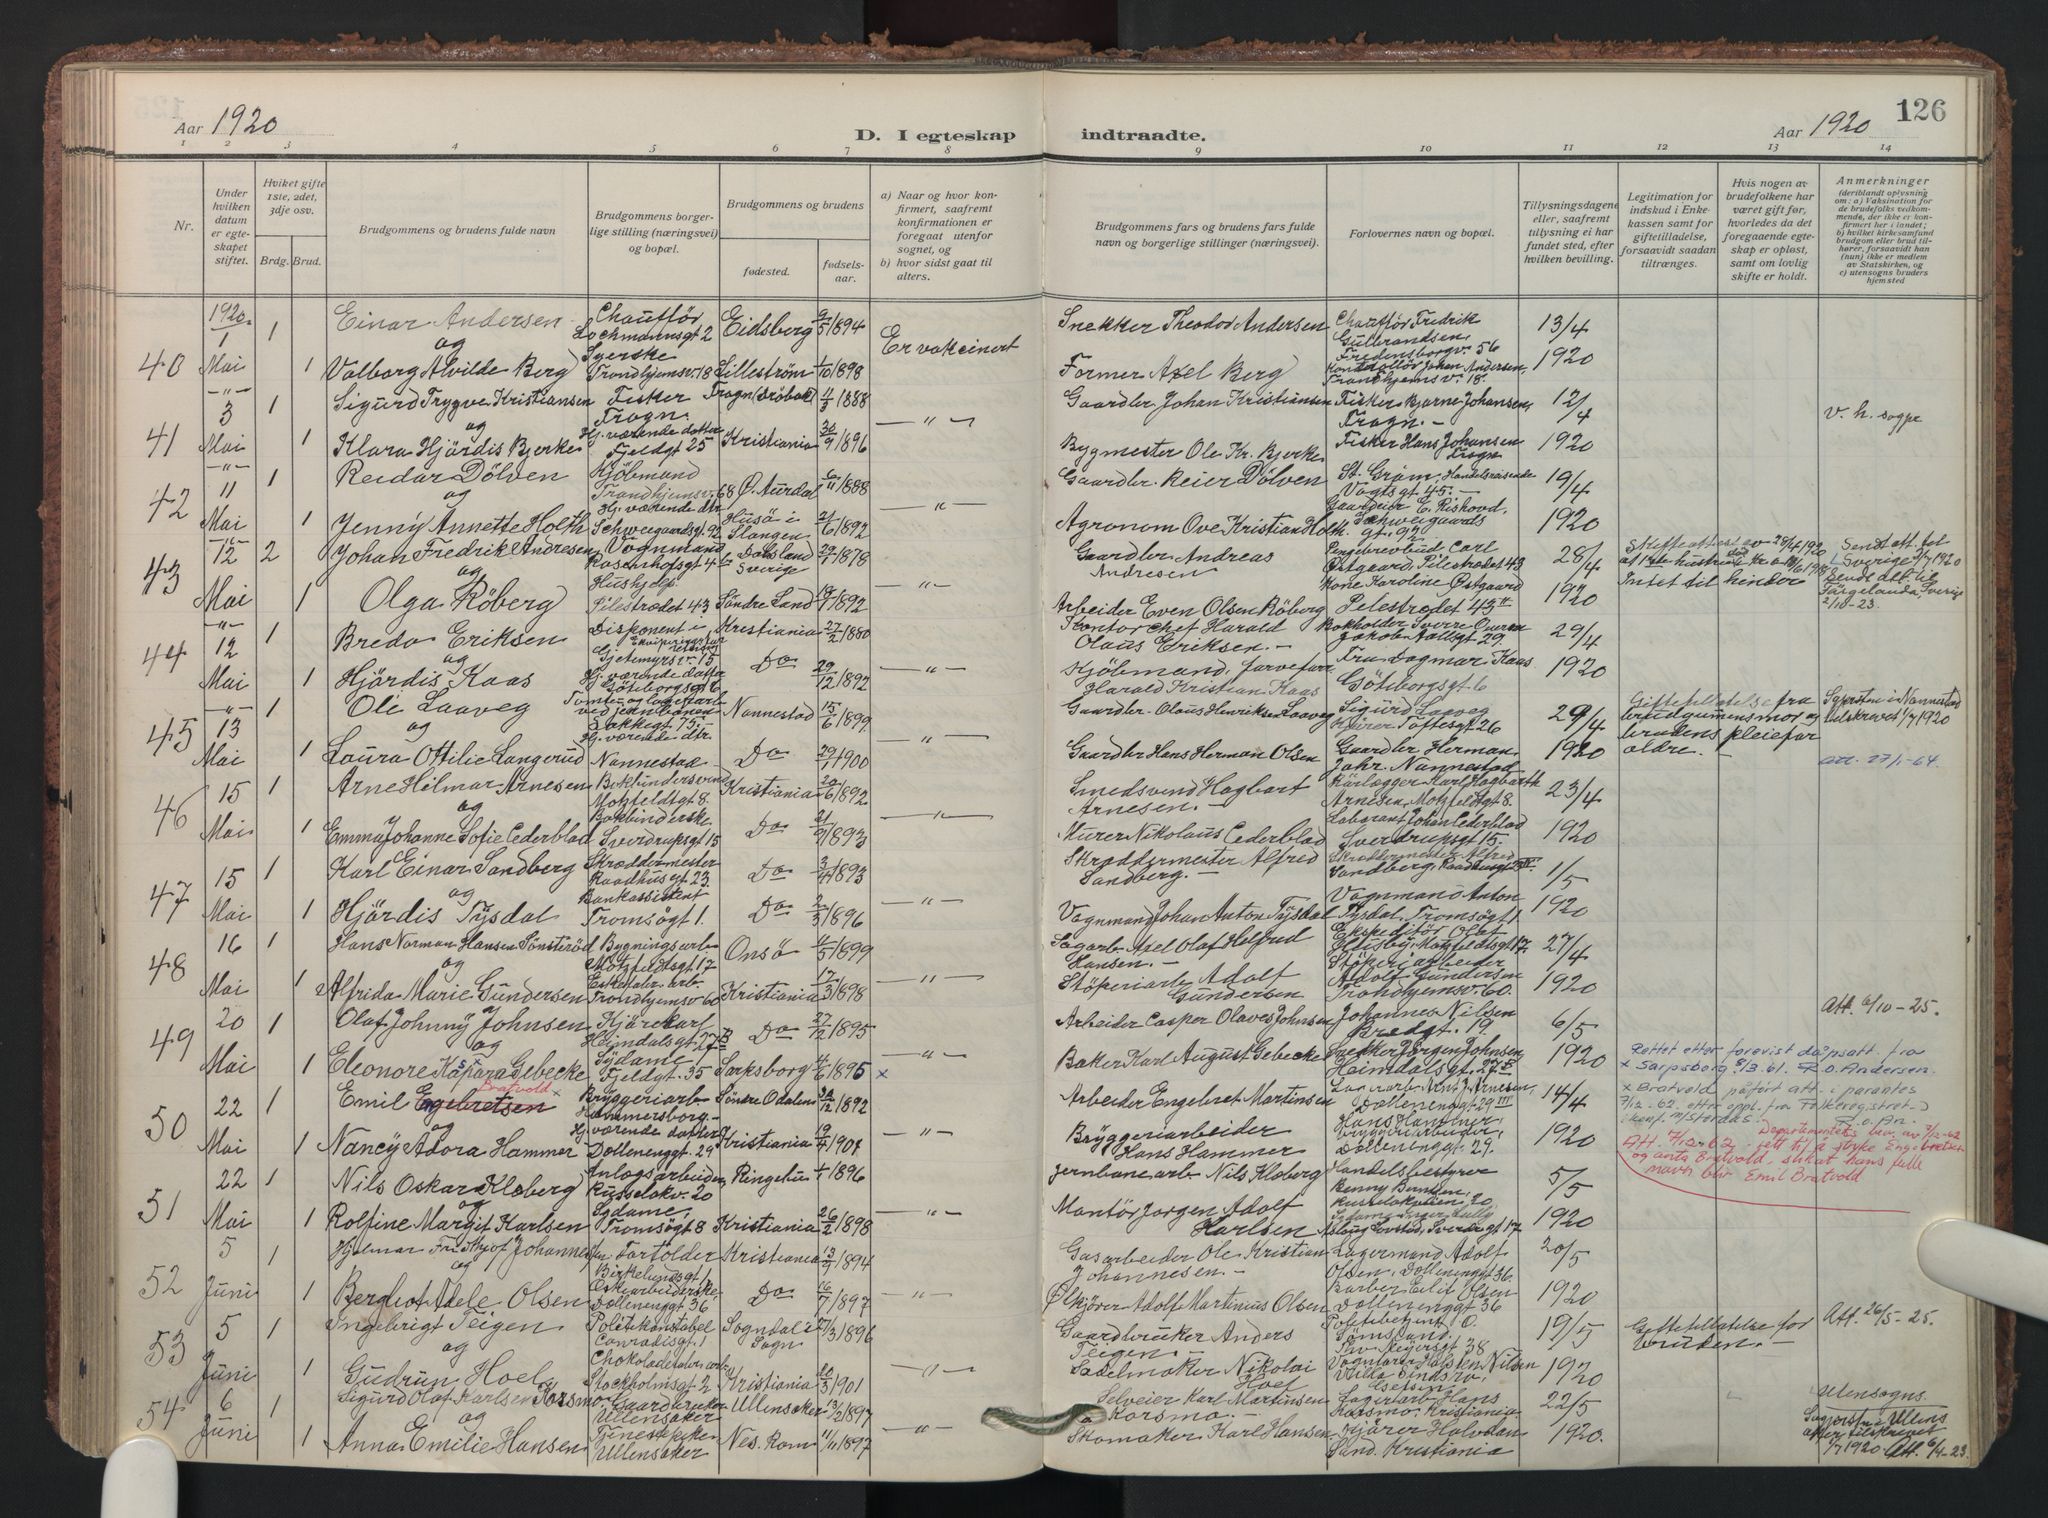 Aar 1920
D. I egteskap indtraadte.
Aar 1920
126
1 2 3 4 5 6 7 8 9 10 11 12 13 14
Nr.
Under hvilken datum er egteskapet stiftet.
Hviket gifte 1ste, 2det, 3dje osv.
Brdg. Brud.
Brudgommens og brudens fulde navn
Brudgommens borgerlige stilling (næringsvei) og bopæl.
Brudgommens og brudens
fødested.
fødselsaar.
a) Naar og hvor konfirmert, saafremt konfirmationen er foregaat utenfor sognet, og
b) hvor sidst gaat til alters.
Brudgommens fars og brudens fars fulde navn og borgerlige stillinger (næringsvei).
Forlovernes navn og bopæl.
Tillysningsdagene eller, saafremt tillysning ei har fundet sted, efter hvilken bevilling.
Legitimation for indskud i Enkekassen samt for giftetilladelse, forsaavidt saadan tiltrænges.
Hvis nogen av brudefolkene har været gift før, hvorledes da det foregaaende egteskap er opløst, samt om lovlig skifte er holdt.
Anmerkninger
(deriblandt oplysning om: a) Vaksination for de brudefolks vedkommende, der ikke er konfirmert her i landet; b) hvilket kirkesamfund brudgom eller brud tilhører, forsaavidt han (hun) ikke er medlem av Statskirken, og c) utensogns bruders hjemsted
40 1920 1 Mai 1 Einar Andersen Chauffør Lochmannsgt 2 Eidsberg 9/5 1894 Er vakcinert Snekker Theodor Andersen Chauffør Fredrik Gulbrandsen, Fredensborgv. 56 13/4
og
1 Valborg Alvilde Berg Syerske Trondhjemsv. 18 Lillestrøm 1/10 1898 Former Axel Berg Johan Andersen, Trondhjemsv. 18. 1920
41 3 Mai 1 Sigurd Trygve Kristiansen Fisker Frogn. Frogn (Drøbak) 4/3 1888 Gaardbr. Johan Kristiansen Fisker Bjarne Johansen, Frogn. 12/4 v. h. sogpr
og
1 Klara Hjördis Bjerke Hj. værende datter Fjeldgt 25 Kristiania 30/9 1896 Bygmester Ole Kr. Bjerke Fisker Hans Johansen Frogn 1920
42 11 Mai 1 Reidar Dölven Kjöbmand Trondhjemsv. 68 Ø. Aurdal 6/11 1888 Gaardbr. Reier Dölven St. Grøm, Handelsreisende Vogtsgt 45. 19/4
og
1 Jenny Annette Holth Hj. værende dtr. Schweigaardsgt. 92 Husö i Slangen 21/6 1892 Agronom Ove Kristian Holth. Gaardeier E. Rishovd, Schweigaards gt. 92 1920
43 12 Mai 2 Johan Fredrik Andresen Vognmand Rosenhofsgt 4 Dalsland Sverige 29/7 1878 Gaardbr Andreas Andresen Pengebrevbud Carl Østgaard, Pilestrædet 43 28/4
og
1 Olga Röberg Hushjelp Pilestrædet 43 Söndre Land 19/1 1892 Arbeider Even Olsen Röberg Kone Karoline Østgaard Pilestrædet 43 II 1920 Intet til hinder
Sendt att. til Sverige 7/7 1920 Sendt att. til Färgelanda, Sverige 2/10-23.
44 12 Mai 1 Bredo Eriksen Disponent i Gjetemyrsv. 15 Kristiania 27/2 1880 Kontorchef Harald Olaus Eriksen. Bokholder Sverre Jakob Aallsgt 29, 29/4
og
1 Hjördis Kaas Hj. værende datter Göteborgsgt 6 Do 29/12 1892 Kjöbmand, farvefar Harald Kristian Kaas Fru Dagmar Kaas Göteborgsgt 6 1920
45 13 Mai Ole Laaveg ved jernbanen Bakkegt 75. Nannestad 15/6 1899 Gaardbr. Olaus Henriksen Laaveg Sigurd Laaveg Kjører Toftesgt 26 29/4 Giftetilladelse fra brudgummens mor og brudens pleiefar Sogprsten i Nannestad tilskrevet 1/7 1920
og
1 Laura Ottilie Langerud Hj. værende dtr. Nannestad Do 29/1 1900 Gaardbr Hans Herman Olsen Gaardbr Herman Nannestad 1920 Att. 27/1-64.
46 15 Mai 1 Arne Hilmar Arnesen Bokbindersvend Motzfeldtgt 8. Kristiania 20/6 1892 Smedsvend Hagbart Arnesen. Rörlægger Karl Hagbarth Arnesen, Motzfeldtsgt 8. 23/4
og
1 Emma Johanne Sofie Cederblad Bokbinderske Sverdrupsgt 15 Do 21/9 1893 Murer Nikolaus Cederblad Laborant Johan Cederblad Sverdrupsgt 15. 1920
47 15 Mai 1 Karl Einar Sandberg Skræddermester Raadhusgt 23. Do 3/4 1893 Skræddermester Alfred Sandberg. Skræddermester Alfred Sandberg, Raadhusgt 1/5
og
1 Hjördis Tysdal Bankassistent Tromsögt 1. Do 2/3 1896 Vognmand Johan Anton Tysdal Vognmand Anton Tysdal, Tromsögt 1 1920
48 16 Mai 1 Hans Norman Hansen Sönsteröd Bygningsarb. Motzfeldtsgt 17 Onsö 4/5 1899 Sagarb. Axel Olaf Helfred Hansen. Ekspeditör Olaf Motzfeldtsgt 17. 27/4
og
1 Alfrida Marie Gundersen Eskefabr. arb. Trondhjemsv 60 Kristiania 17/3 1898 Stöperiarb. Adolf Gundersen Stöperiarbeider Adolf Gundersen Trondhjemsv. 60. 1920
49 20 Mai 1 Olaf Johnny Johnsen Kjörekarl Heimdalsgt 27 B Do 27/12 1895 Arbeider Casper Olaves Johnsen Johannes Nilsen Bredgt. 19. 6/5 Att. 6/10-25.
og
1 Eleonore Kaspara Gebecke Sydame Fjeldgt. 35 Sarpsborg 4/6 1895 x Baker Karl August Gebecke Snekker Jörgen Johnsen, Heimdalsgt. 27 B 1920 Rettet etter forevist dåpsatt. fra x Sarpsborg 9/3.61. R.O. Andersen.
50 22 Mai 1 Emil Engebretsen Bratvold x Bryggeriarb. Hammersborg Söndre Odalen 30/12 1892 Arbeider Engebret Martinsen Lagerarb. Arnt J. Arnesen, Dælenenggt 29 III 14/4 x Bratvold påført att. i parantes 7/12-62 etter oppl. fra Folkeregistret
og
1 Nancy Adora Hammer Hj. værende datter Dælenenggt. 29 Kristiania 19/4 1901 Bryggeriarbeider Hans Hammer Hans Hammer bryggeriarbeider, Dælenenggt 29. 1920
Departementets bev. av 7/12-62 Att. 7/12-62. rett til å sløyfe Engebretsen og anta Bratvold, slik at hans fulle navn blir Emil Bratvold
51 22 Mai 1 Nils Oskar Kloberg Anlægsarbeider, Russeløkv. 20 Ringebu 1/1 1896 Jernbanearb. Nils Kloberg Handelsbestyrer Benny Berntsen, Russeløkveien 20 5/5
og
1 Rolfine Margit Karlsen Sydame, Tromsögt 8 Kristiania 26/2 1898 Montör Jörgen Adolf Karlsen 1920
52 5 Juni 1 Hjalmar Fridthjof Johannesen Birkelundsgt 1 Kristiania 13/9 1894 Gasarbeider Ole Kristian Johannesen. Lagermand Adolf Olsen, Dælenenggt 36 20/5
og
1 Borghot Adele Olsen Eskearbeiderske, Dælenenggt 36 Do 16/7 1897 Ølkjører Adolf Martinius Olsen Barber Eilif Olsen Dælenenggt 36 1920
53 5 Juni 1 Ingebrigt Teigen Politikonstabel Conradisgt. 1 Sogndal i Sogn 27/3 1896 Gaardbruker Anders Teigen. Politibetjent O. Thv. Meyersgt 38 19/5 Giftetilladelse for bruden. Att. 26/5-25.
og
1 Gudrun Hoel Chokoladefabr. arb. Stockholmsgt 2 Kristiania 20/3 1901 Sadelmaker Nikolai Hoel 1920
54 6 Juni 1 Sigurd Olaf Karlsen Korsmo Gaardbruker Ullensaker Ullensaker 13/2 1897 Selveier Karl Martinsen Korsmo. Lagerarb. Hans Korsmo, Kristiania 22/5 Utensogns.
og
1 Anna Emilie Hansen Tjenestepike Ullensaker Nes. Rom. 11/11 1897 Skomaker Karl Hansen Kjörer Halvdan Sand. Kristiania 1920. Sogprstn. i Ullensaker tilskrevet 1/7 1920 Att. 6/4-23.